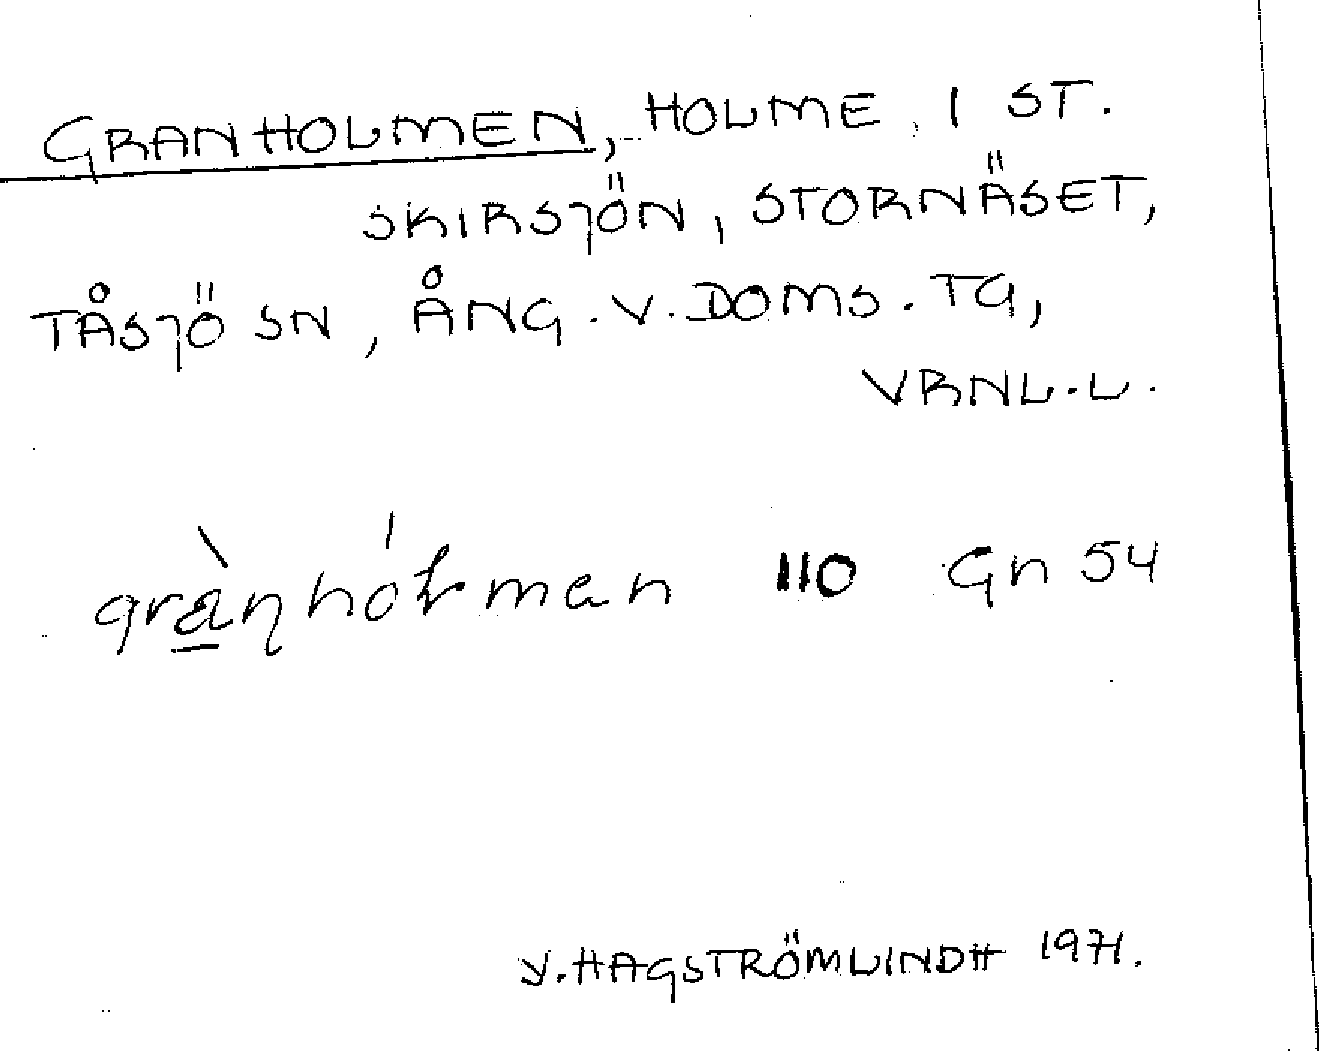 GRANHOLMEN, HOLME, I ST.
SKIRSJÖN, STORNÄSET,
TÅSJÖ SN, ÅNG. V. DOMS. TG,
VRNL. L.
110 Gn 54
Y. HAGSTRÖMLINDH 1971.